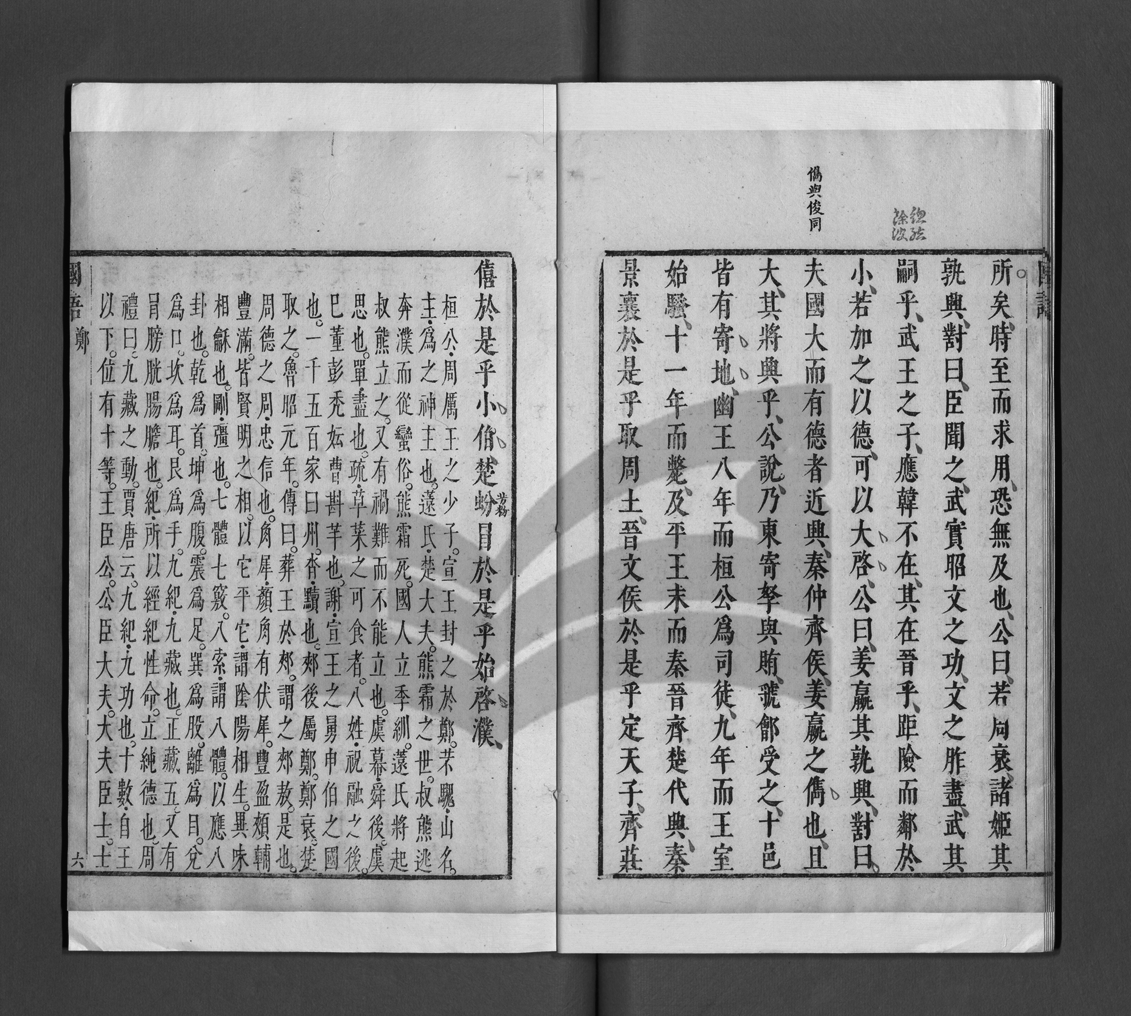 國語
所矣、時至而求用、恐無及也、公曰、若周衰、諸姬其
孰興、對曰、臣聞之、武實昭文之功、文之胙盡、武其
嗣乎、武王之子、應韓不在、其在晉乎、距險而鄰於
小、若加之以德、可以大啓、公曰、姜嬴其孰興、對曰、
夫國大而有德者近興、秦仲齊侯、姜嬴之儁也、且
大、其將興乎、公說、乃東寄孥與賄、虢鄶受之、十邑
皆有寄地、幽王八年而桓公爲司徒、九年而王室
始騷、十一年而斃、及平王末而秦晉齊楚代興、秦
景襄於是乎取周土、晉文侯於是乎定天子、齊莊
儁與俊同
僖於是乎小伯、楚蚡冒於是乎始啓濮、
桓公、周厲王之少子。宣王封之於鄭。芣騩、山名。
主、爲之神主也。薳氏、楚大夫。熊霜之世。叔熊逃
奔濮而從蠻俗。熊霜死。國人立季紃。薳氏將起
叔熊立之。又有禍難而不能立也。虞幕、舜後。虞
思也。單、盡也。疏、草菜之可食者。八姓、祝融之後。
巳董彭禿妘曹斟芊也。謝、宣王之舅申伯之國
也。一千五百家曰州。㐫、黷也。郟後屬鄭。鄭衰。楚
取之。魯昭元年。傳曰。葬王於郟。謂之郟敖。是也。
周德之周、忠信也。角犀、顏角有伏犀。豐盈、頰輔
豐滿。皆賢明之相。以它平它、謂陰陽相生。異味
相龢也。剛、彊也。七體七竅。八索、謂八體。以應八
卦也。乾爲首。坤爲腹。震爲足。巽爲股。離爲目。兌
爲口。坎爲耳。艮爲手。九紀、九藏也。正藏五。又有
胃膀胱腸膽也。紀所以經紀性命。立純德也。周
禮曰。九藏之動。賈唐云。九紀、九功也。十數、自王
以下。位有十等。王臣公。公臣大夫。大夫臣士。士
國語 鄭 六